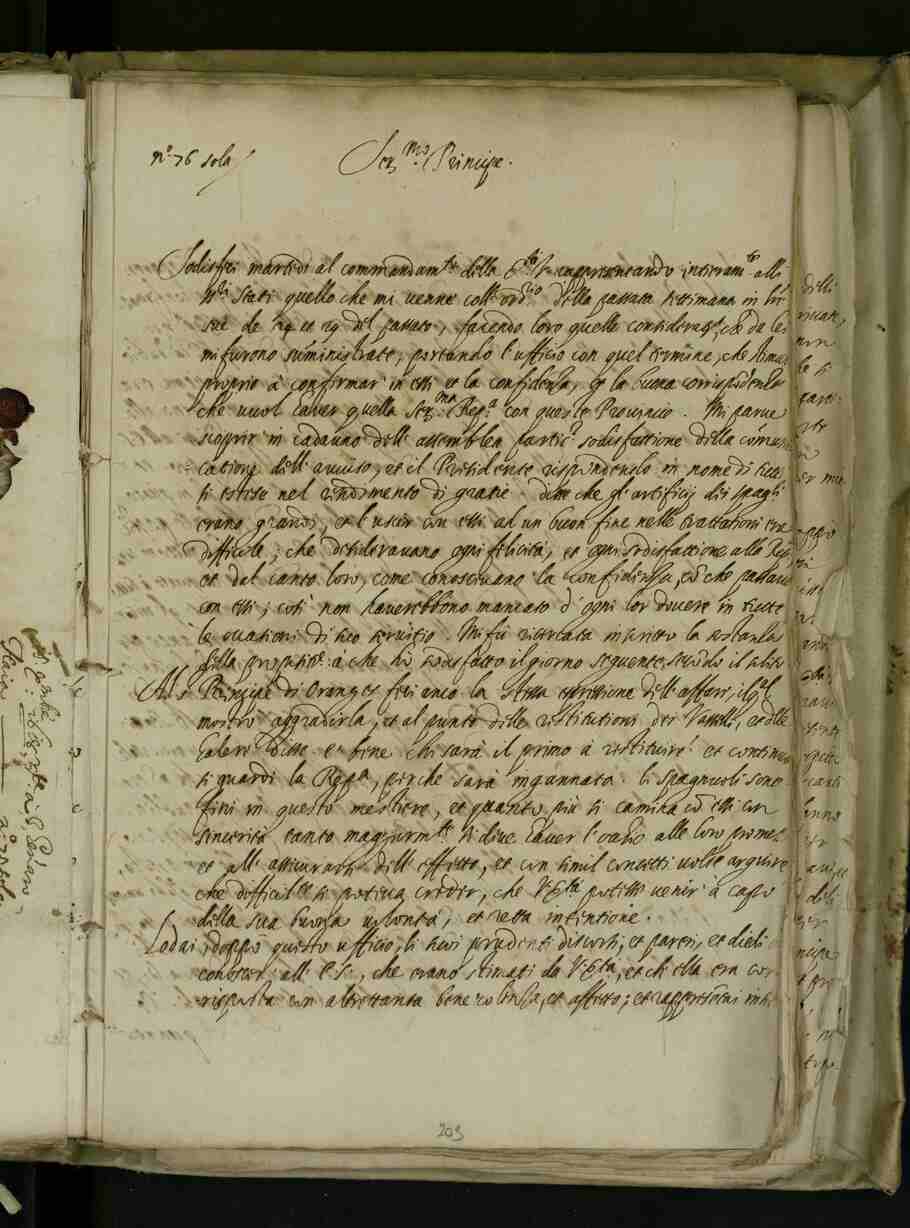 n.º 76 sola
Ser.mo Principe.
Sodisfeci martedì al commandam.to della Ser.tà V.ra rappresentando interam.te alli
S.ri Stati quello che mi venne coll' ord.rio della passata settimana in let-
re de 24 et 29 del passato, facendo loro quelle considerat.ni, che da lei
mi furono sumministrate, portando l'ufficio con quel termine, che stimai
proprio à confirmar in essi et la confidenza, et la buona corrispondenza
che vuol haver quella Ser.ma Rep.ca con queste Provincie. Mi parve
scoprir in cadauno dell' assemblea partic.r sodisfattione della communi-
catione dell' avviso, et il Presidente rispondendo in nome di tutti
si estese nel rendimento di gratie. disse che gl'artificij dei spag.li
erano grandi, et l'uscir con essi ad un buon fine nelle trattationi era
difficile; che desideravano ogni felicità, et ogni sodisfattione alla Rep.ca
et dal canto loro, come conoscevano la confidenza, che passava
con essi; così non haverebbono mancato d'ogni lor dovere in tutte
le occasioni di suo servitio. Mi fù ricercata in scritto la sostanza
della proposit.ne à che hò sodisfatto il giorno seguente secondo il solito
Al s.r Principe di Oranges feci anco la stessa espressione dell' affari; il q.al
mostrò aggradirla, et al punto delle restitutioni dei Vasselli, et delle
Galere disse e' bene chi sarà il primo à restituire? et continuò
si guardi la Rep.ca, perche sarà ingannata. li spagnuoli sono
fini in questo mestiere, et quanto più si camina con essi con
sincerità tanto maggiorm.te si deve haver l'occhio alle loro promesse
et all' assicurarsi dell' effetto, et con simil concetti volse arguire
che difficilm.te si poteva creder, che V. Ser.tà potesse venir à capo
della sua buona volontà, et retta intentione.
Lodai, doppo questo ufficio, li suoi prudenti discorsi, et pareri, et diedi à
conoscer all' E. S., che erano stimati da V. Ser.tà, et ch'ella era cor-
risposta con altrettanta benevolenza, et affetto; et
203